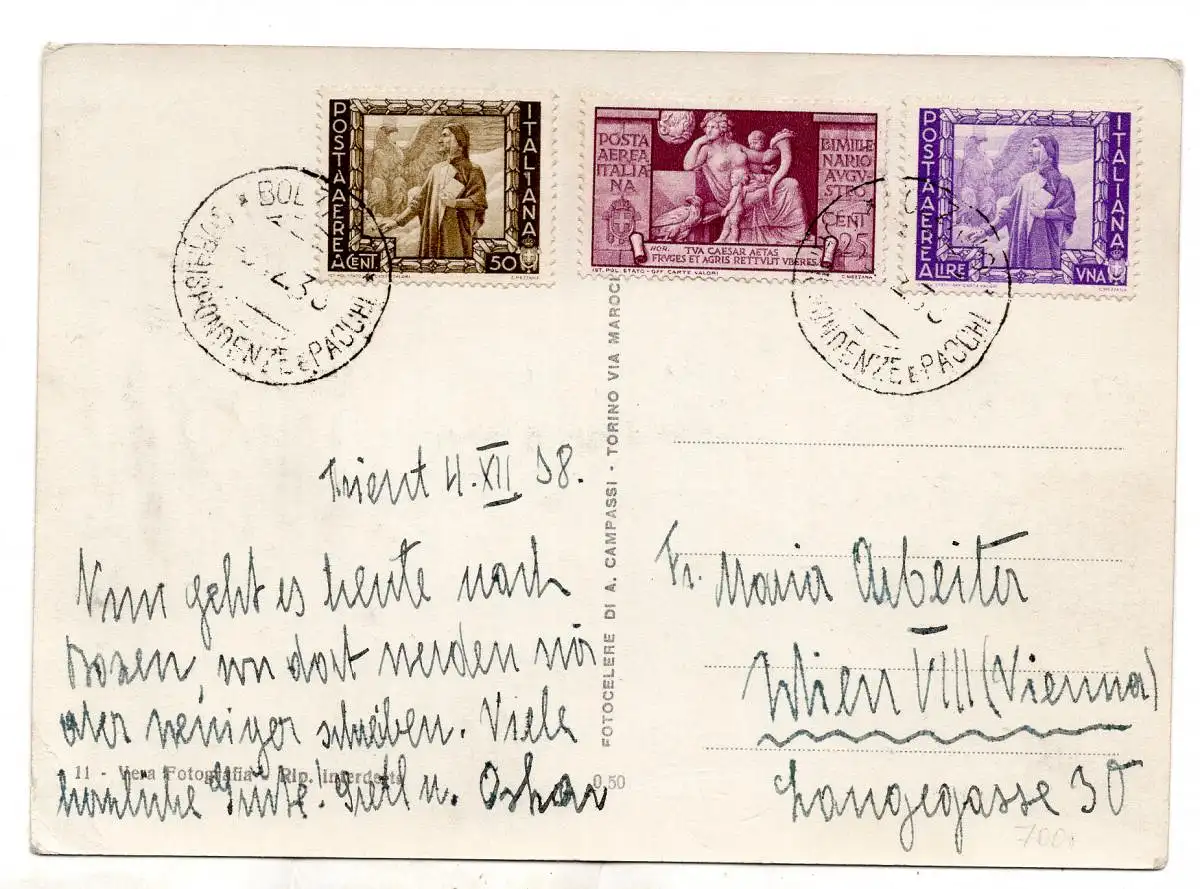 POSTA AEREA
ITALIANA
CENT 50
IST. POL. STATO - OFF. CARTE VALORI
C. MEZZANA
POSTA
AEREA
ITALIA
NA
BIMILLE
NARIO
AVGV
STEO
CENT
25
HOR.
TVA CAESAR AETAS
FRVGES ET AGRIS RETTVLIT VBERES
IST. POL. STATO - OFF. CARTE VALORI
C. MEZZANA
POSTA AEREA
ITALIANA
LIRE VNA
C. MEZZANA
CORRISPONDENZE E PACCHI
CORRISPONDENZE E PACCHI
FOTOCELERE DI A. CAMPASSI - TORINO VIA MAROCH
Trient 4. XII. 38.
Nun geht es heute nach
Bozen, von dort werden wir
aber weniger schreiben. Viele
herzliche Grüße! Gretl u. Oskar
11 - Vera Fotografia - Rip. interdetta
0,50
Fr. Maria Arbeiter
Wien VIII (Vienna)
Langegasse 30